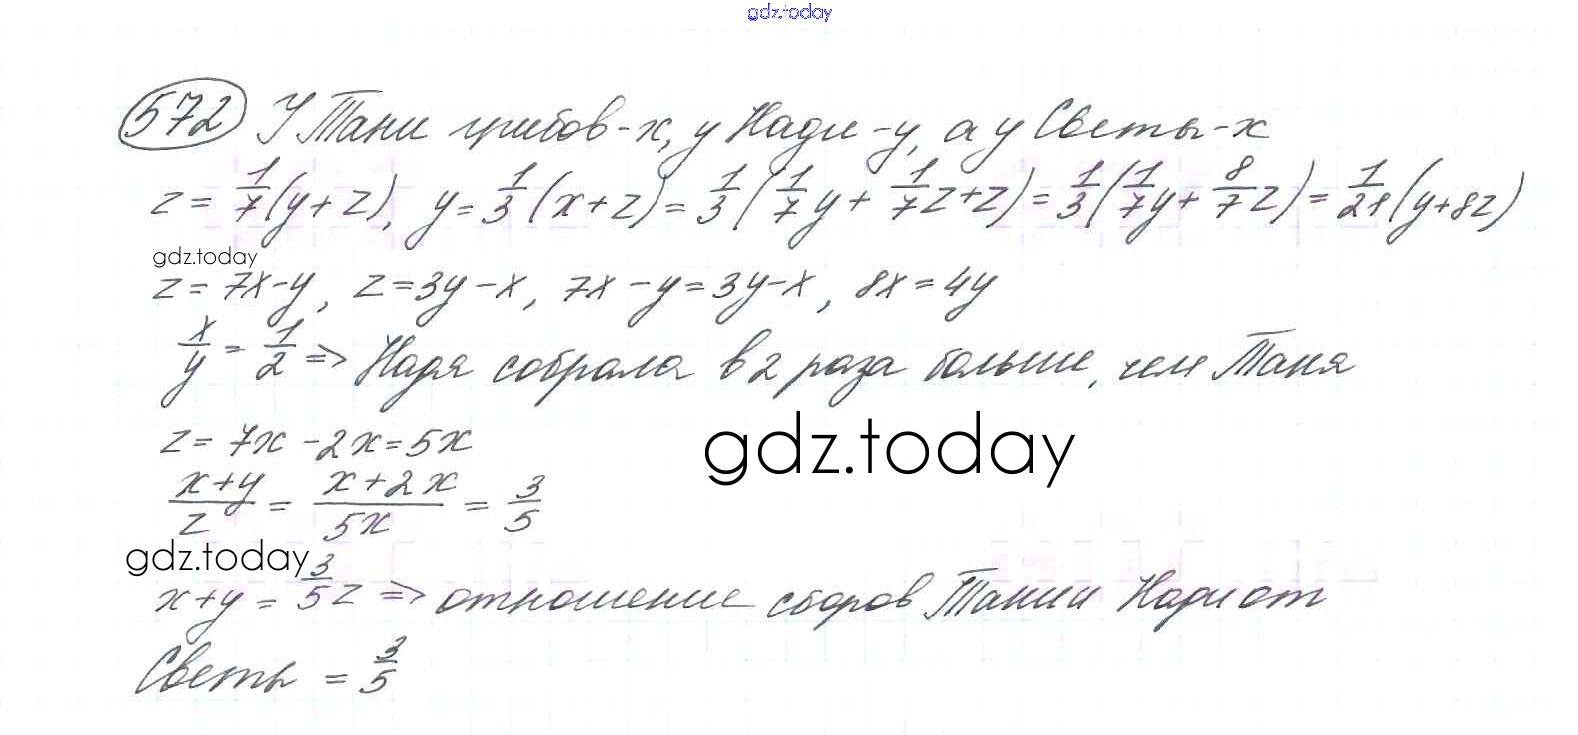 gdz.today
572 У Тани грибов-x, у Нади-y, а у Светы-x
z = 1/7(y+z), y = 1/3(x+z) = 1/3(1/7y + 1/7z+z) = 1/3(1/7y + 8/7z) = 1/21(y+8z)
gdz.today
z = 7x-y, z=3y-x, 7x-y=3y-x, 8x=4y
x/y = 1/2 => Надя собрала в 2 раза больше, чем Таня
z = 7x-2x=5x
gdz.today
x+y/z = x+2x/5x = 3/5
gdz.today
x+y = 3/5z => отношение сборов Тани и Нади от
Светы = 3/5